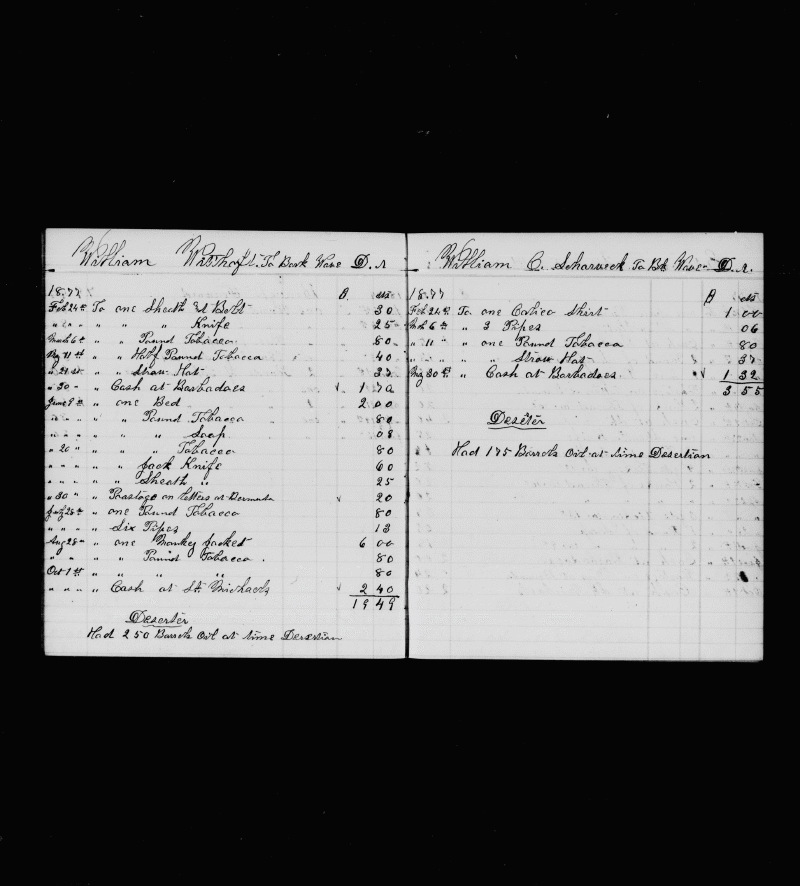 William To Bark Wave D. r
1877 $ cts
Feb 24th To one Sheath & Belt 30
" " " " " " Knife 25
March 6th " " Pound Tobacco 80
" 11th " " Half Pound Tobacco 40
" 21st " " Straw Hat 37
" 30 " " Cash at Barbadoes √ 1
June 8th " one Bed 2 00
" " " " " Pound Tobacco 80
" " " " " " Soap 08
" 20 " " " " Tobacco 80
" " " " " Jack Knife 60
" " " " " Sheath " 25
" 30 " Poastage on letters at Bermuda √ 20
July 28th " one Pound Tobacco 80
" " " " Six Pipes 13
Aug 28th " one Monkey Jacket 6 00
" " " " Pound Tobacco . 80
Oct 1st " " " " 80
" " " " Cash at St. Michaels √ 2 40
19 49
Deserter
Had 250 Barrels Oil at time Desertian
William C. To Bk Wave D. r.
1877 $ cts
Feb 24th To one Calico Shirt 1 00
March 6th " 3 Pipes 06
" 11 " " one Pound Tobacco 80
" " " " " Straw Hat 37
30th " Cash at Barbadoes √ 1 32
3 55
Deserter
Had 175 Barrels Oil at time Desertian